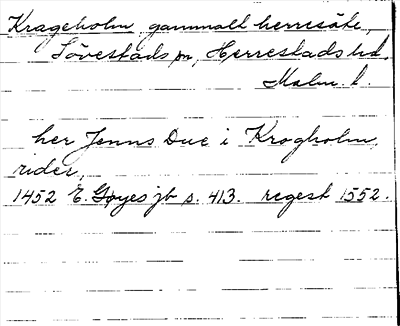 Krageholm, gammalt herresäte,
Sövestads sn, Herrestads hd.
Malm. l.
her Jenns Due i Krogholm,
rider,
1452 E. Gøyes jb s. 413. regest 1552.